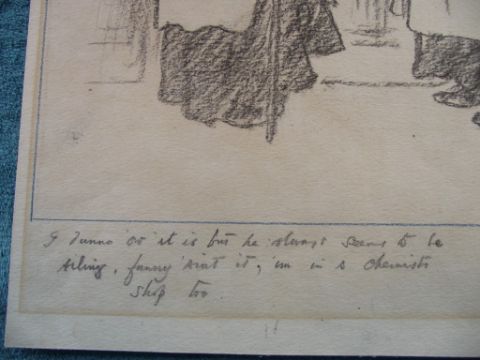 I dunno 'ow it is but he always seems to be
ailing, funny 'aint it, 'im in a chemists
shop too.